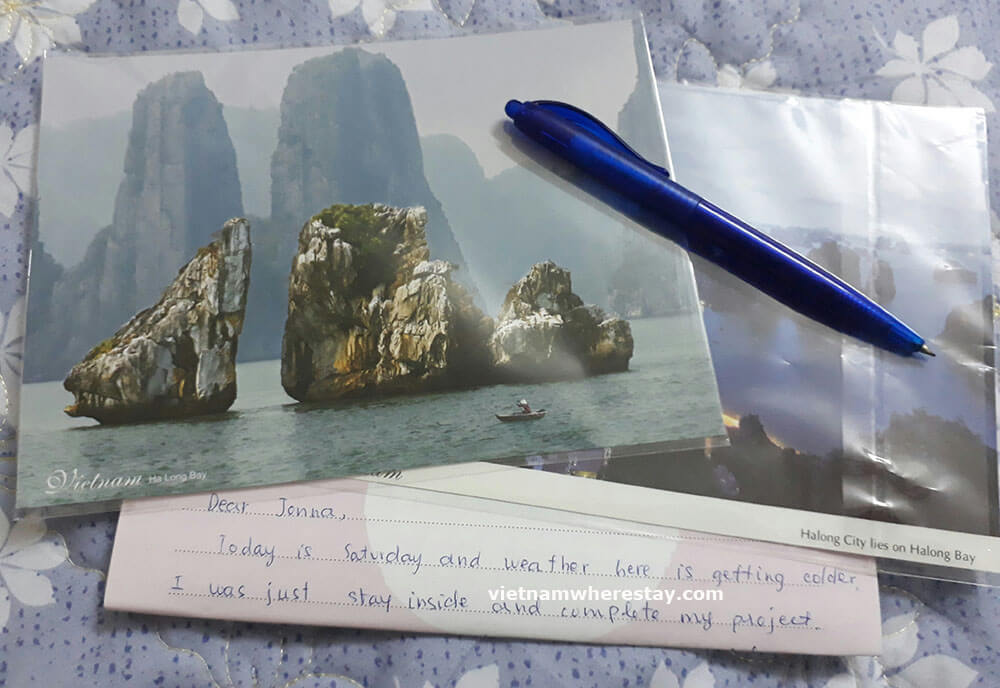 Vietnam Ha Long Bay
om
Halong City lies on Halong Bay
Dear Jonna,
Today is Saturday and weather here is getting colder.
I was just stay inside and complete my project.
vietnamwherestay.com